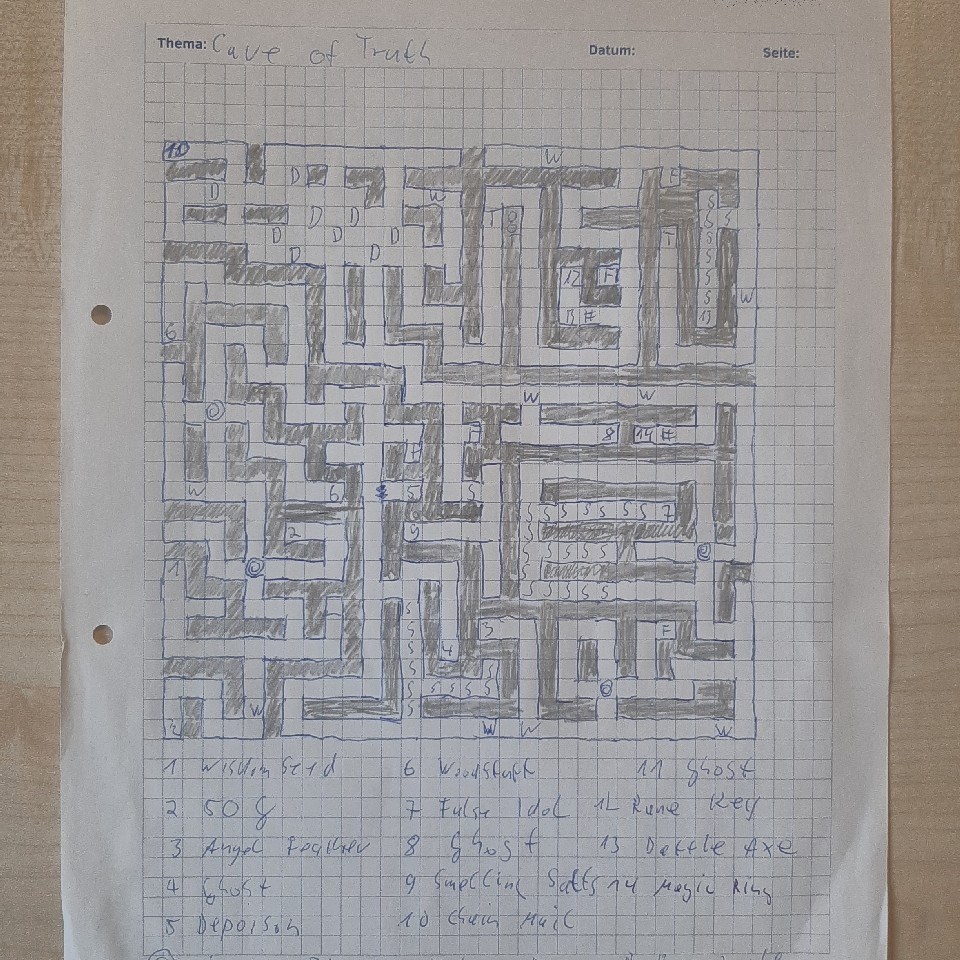 Thema: Cave of Truth Datum: Seite:
10
W
D F
D W S
D D T 8 S S
D D D T S
D D S
12 F S
S W
6 13 # 13
W W
7 8 14 #
#
W 6 5 S
S S S S S S S 7
2 9 S
S S S S S
1 S
S S S S S S
S 3 F
S 4
S S
S S S S S
W S
3 W W W
1 Wisdom Seed 6 Woodstaff 11 Ghost
2 50 g 7 False Idol 12 Rune Key
3 Angel Feather 8 Ghost 13 Battle Axe
4 Ghost 9 Smelling Salts 14 Magic Ring
5 Depoison 10 Chain Mail